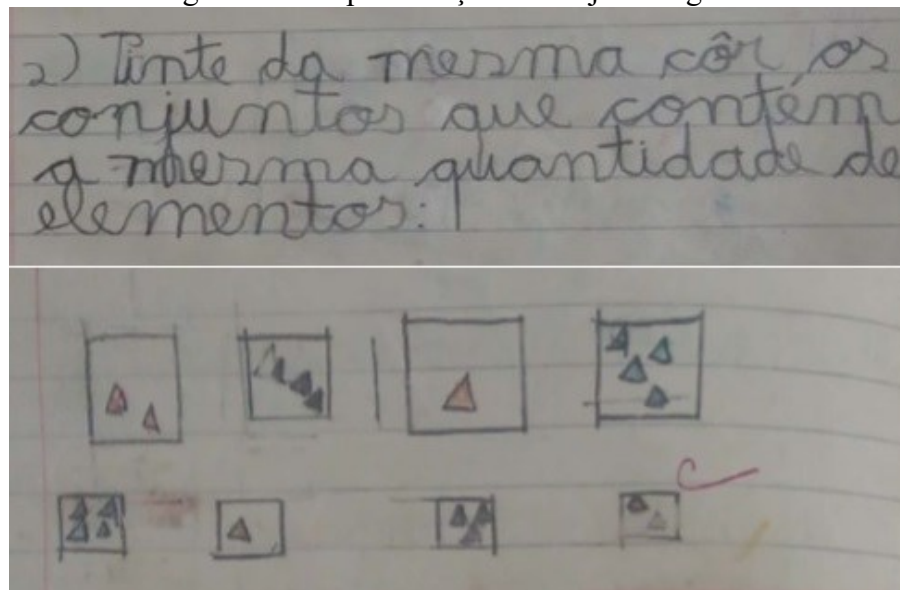 2) Pinte da mesma côr os
conjuntos que contém
a mesma quantidade de
elementos: